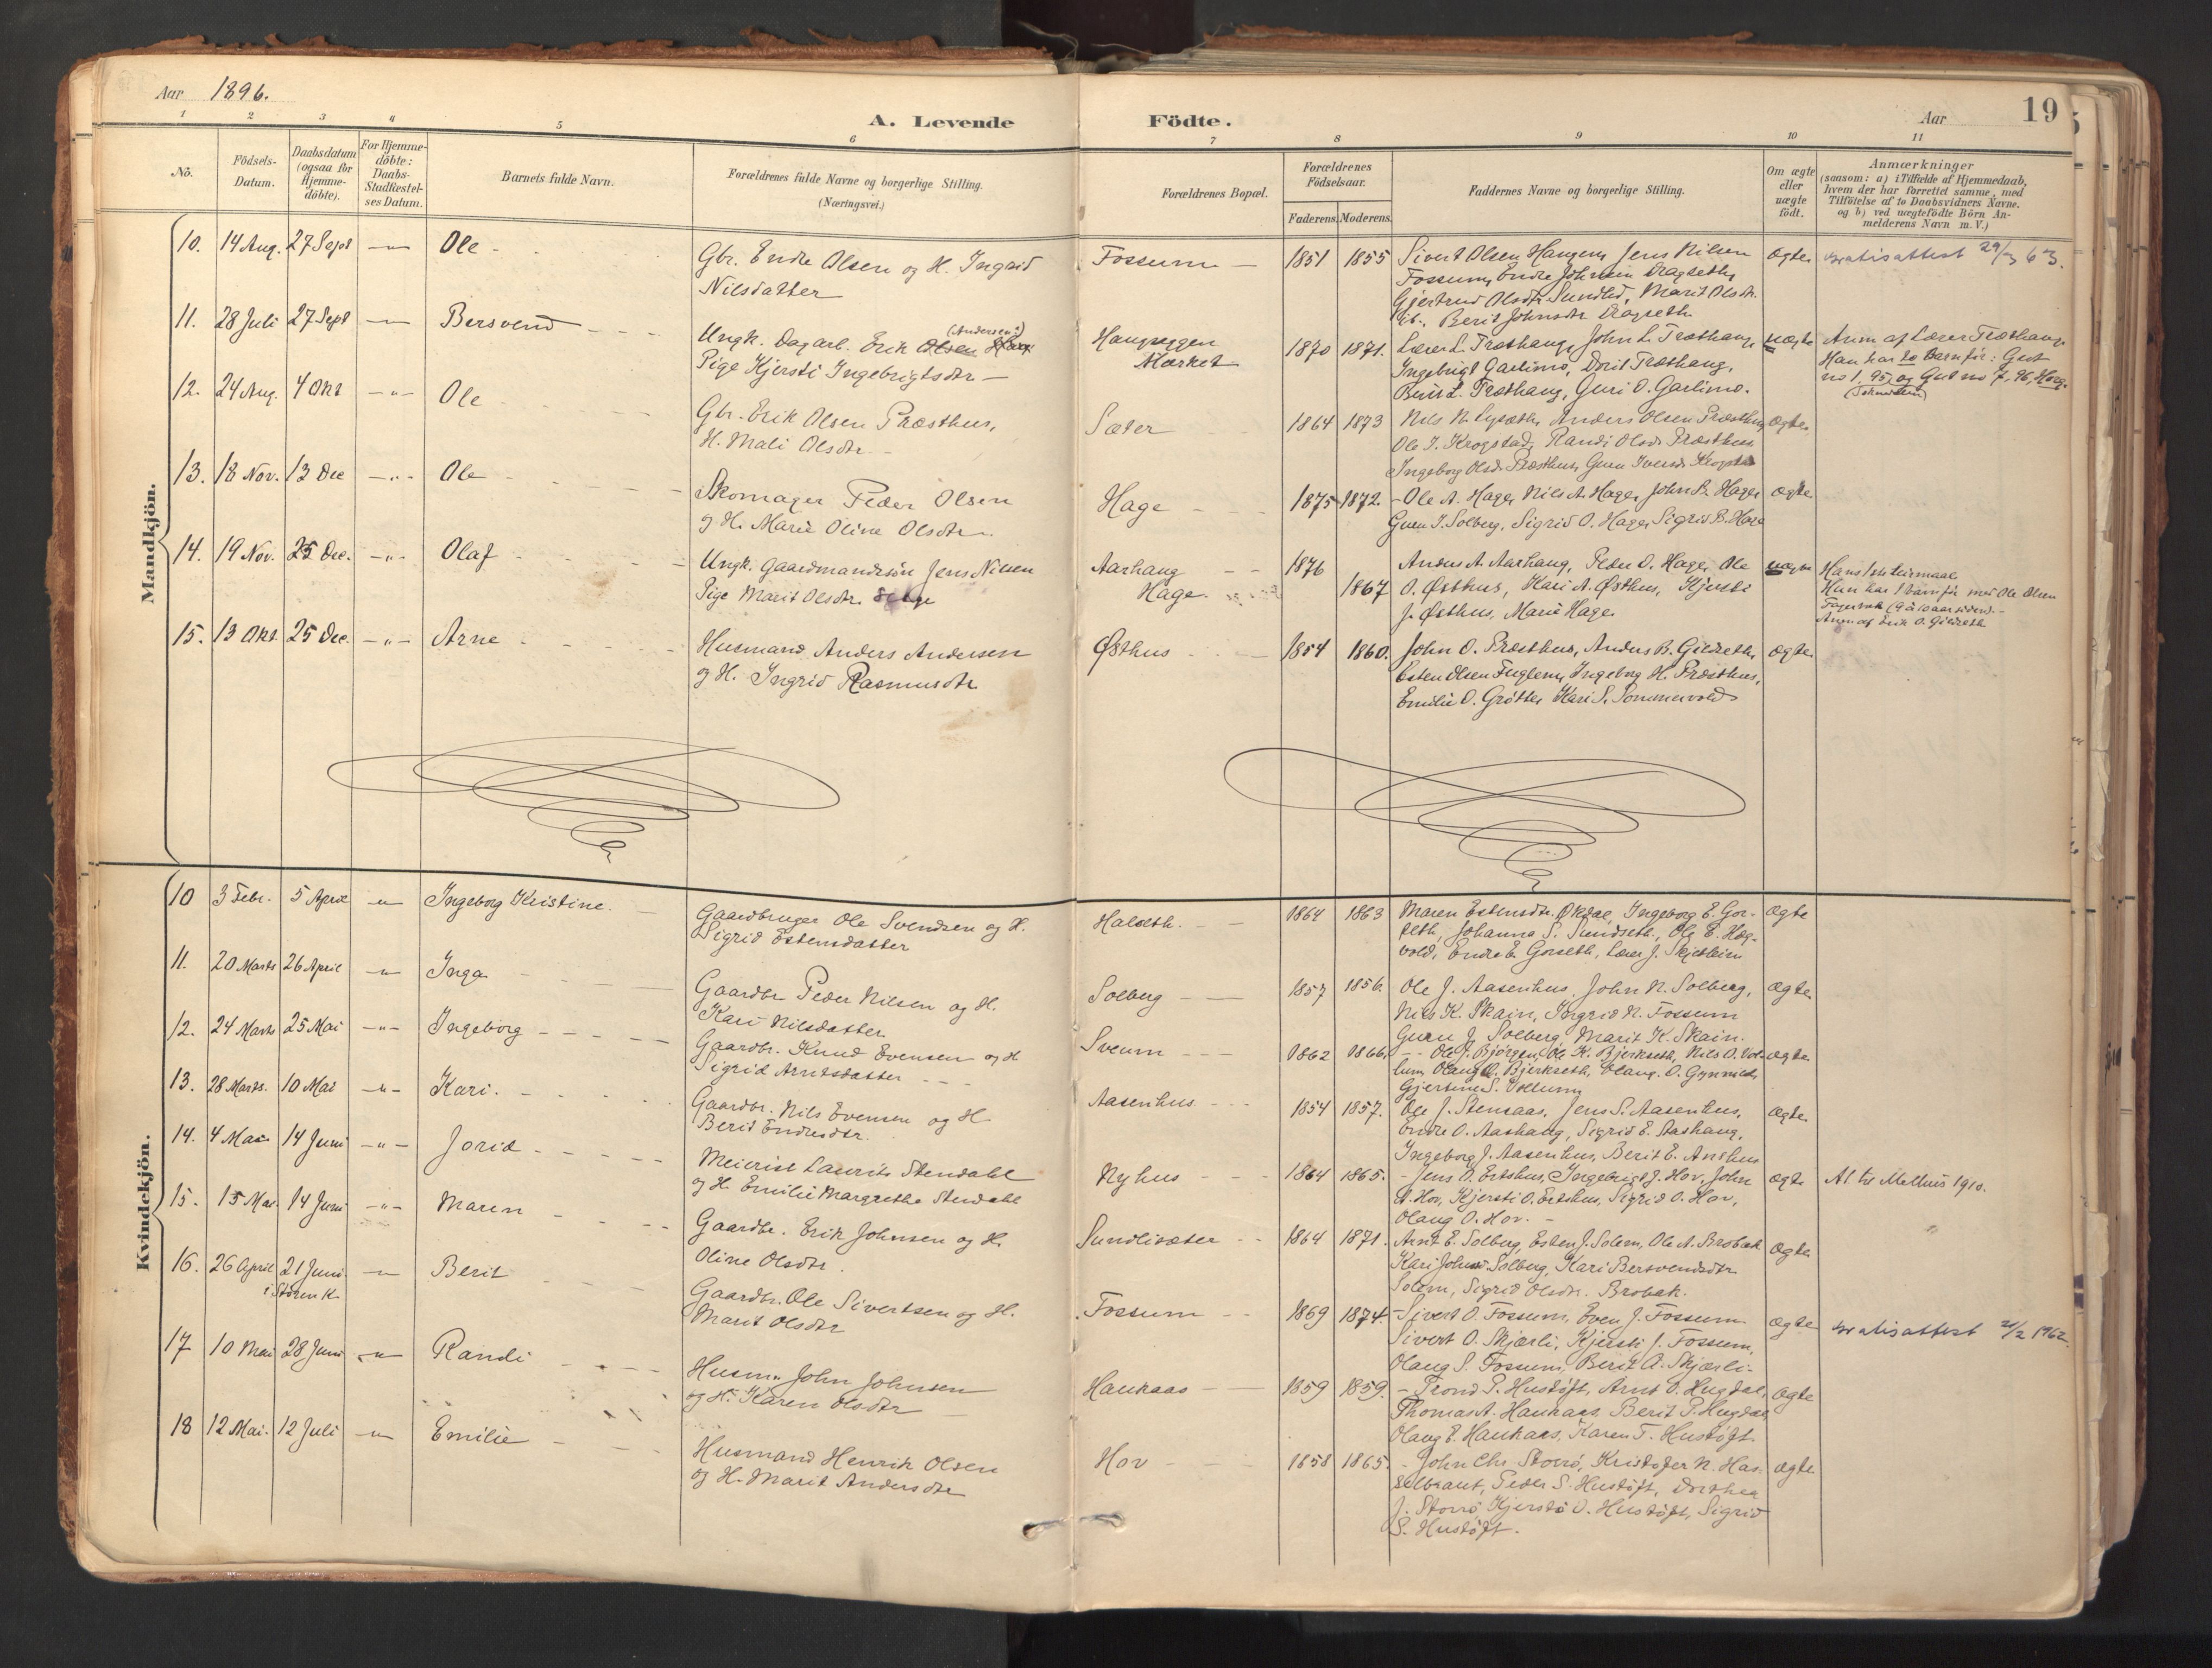 Aar 1896.
A. Levende Födte.
Aar 19
1 2 3 4 5 6 7 8 9 10 11
No.
Födsels-Datum.
Daabsdatum (ogsaa for Hjemme-döbte).
For Hjemme-döbte: Daabs-Stadfæstel-ses Datum.
Barnets fulde Navn.
Forældrenes fulde Navne og borgerlige Stilling. (Næringsvei.)
Forældrenes Bopæl.
Forældrenes Födselsaar.
Faderens. Moderens.
Faddernes Navne og borgerlige Stilling.
Om ægte eller uægte födt.
Anmærkninger
(saasom: a) i Tilfælde af Hjemmedaab,
hvem der har forrettet samme, med
Tilföielse af to Daabsvidners Navne.
og b) ved uægtefödte Börn An-
melderens Navn m. V.)
Mandkjön.
10. 14 Aug. 27 Sept — Ole
Gbr. Endre Olsen og H. Ingrid
Nilsdatter
Fossum 1851 1855
Sivert Olsen Haugen, Jens Nilsen
Fossum, Endre Johnsen Dragseth,
Gjertrud Olsdtr Sundlid, Marit Olsdtr.
ib., Berit Johnsdtr Dragseth
Ægte
gratisattest 29/3 63.
11. 28 Juli 27 Sept — Bersvend
Ungk. Dagarb. Erik Olsen (Andersen)
Pige Kjersti Ingebrigtsdtr
Haugreggen
Market
1870 1871.
Lærer L. Træthaug, John L. Træthaug,
Ingebrigt Garlimo, Dorit Træthaug,
Berit L. Træthaug, Guri O. Garlimo.
uægte
Anm af Lærer Træthaug
Han har to Barn før: Gut
no 1, 95, og Gut no 7, 96, Horg.
12. 24 Aug. 4 Okt — Ole
Gbr. Erik Olsen Præsthus,
H. Mali Olsdtr.
Sæter 1864 1873
Nils N. Lysæth, Anders Olsen Præsthus
Ole I. Krogstad, Randi Olsdr Præsthus
Ingeborg Olsd. Præsthus, Guru Iversd. Krogstad
Ægte
13. 18 Nov. 13 Dec — Ole
Skomager Peder Olsen
og H. Marie Oline Olsdtr.
Hage 1875 1872.
Ole A. Hage, Nils A. Hage, John B. Hage
Guru I. Solberg, Sigrid O. Hage, Sigrid B. Hage
Ægte
14. 19 Nov. 25 Dec. — Olaf
Ungk. Gaardmandssön Jens Nilsen
Pige Marit Olsdtr.
Aarhaug 1876
Hage. 1867
Anders A. Aarhaug, Peder O. Hage, Ole
O. Østhus, Kari A. Østhus, Kjersti
J. Østhus, Marie Hage
uægte
Hans 1ste Leiermaal
Hun har 1 barn før med Ole Olsen
(9 à 10 aar siden).
Anm af Erik O. Gildseth
15. 13 Okt. 25 Dec. — Arne
Husmand Anders Andersen
og H. Ingrid Rasmusdtr
Østhus 1854 1860.
John O. Præsthus, Anders B. Gildseth,
Esten Olsen Fuglem, Ingeborg H. Præsthus,
Emilie O. Grötte, Kari S. Sommervold
Ægte
Kvindekjön.
10 3 Febr. 5 April — Ingeborg Kristine.
Gaardbruger Ole Svendsen og H.
Sigrid Estensdatter
Halseth. 1864 1863
Maren Estensdtr. Økdal, Ingeborg E. Gor-
seth, Johanna S. Sundseth, Ole E. Hog-
vold, Endre E. Gorseth, Lærer J. Skjetlein
Ægte
11. 20 Marts 26 April — Inga
Gaardbr Peder Nilsen og H.
Kari Nilsdatter
Solberg 1857 1856.
Ole J. Aasenhus, John N. Solberg,
Nils K. Skain, Ingrid N. Fossum
Guru J. Solberg, Marit K. Skain.
Ægte
12. 24 Marts 25 Mai — Ingeborg
Gaardbr. Knud Evensen og H
Sigrid Arntsdatter
Sveum 1862 1866.
Ole J. Bjørgen, Ole K. Bjerkseth, Nils O. Vol-
lum, Olaug O. Bjerkseth, Olaug. O. Gynnild
Gjertine S. Vollum
Ægte
13. 28 Marts. 10 Mai — Kari.
Gaardbr. Nils Evensen og H
Berit Endresdtr.
Aasenhus 1854 1857.
Ole J. Stensaas, Jens S. Aasenhus,
Endre O. Aashaug, Sigrid E. Aashaug,
Ingeborg J. Aasenhus, Berit E. Anshus
Ægte
14. 4 Mai 14 Juni — Jorid
Meierist Laurits Stendahl
og H. Emilie Margrethe Stendahl
Nyhus 1864 1865.
Jens O. Ertshus, Ingebrigt J. Hov, John
A. Hov, Kjersti O. Ertshus, Sigrid O. Hov,
Olaug O. Hov.
Ægte
At. til Melhus 1910.
15. 15 Mai 14 Juni — Maren
Gaardbr. Erik Johnsen og H.
Oline Olsdtr.
Sundlisæter 1864 1871.
Arnt E. Solberg, Esten J. Solem, Ole A. Brobak
Kari Johnsd. Solberg, Kari Bersvendsdtr
Solem, Sigrid Olsdtr. Brobak.
Ægte
16. 26 April 21 Juni i Stören K. — Berit
Gaardbr. Ole Sivertsen og H.
Marit Olsdtr
Fossum 1869 1874.
Sivert O. Fossum, Even J. Fossum
Sivert O. Skjærli, Kjersti J. Fossum,
Olaug S. Fossum, Berit A. Skjærli
Ægte
gratisattest 21/2 1962
17 10 Mai 28 Juni — Randi
Husm. John Johnsen
og H. Karen Olsdtr
Haukaas 1859 1859.
Trond P. Hustöft, Arnt O. Hugdal,
Thomas A. Haukaas, Berit P. Hugdal,
Olaug E. Haukaas, Karen T. Hustöft
Ægte
18 12 Mai. 12 Juli — Emilie
Husmand Henrik Olsen
og H. Marit Andersdtr
Hov 1858 1865.
John Chr Storrö, Kristofer N. Has-
selbraut, Peder S. Hustöft, Dorthea
J. Storrö, Kjersti O. Hustöft, Sigrid
S. Hustöft.
Ægte